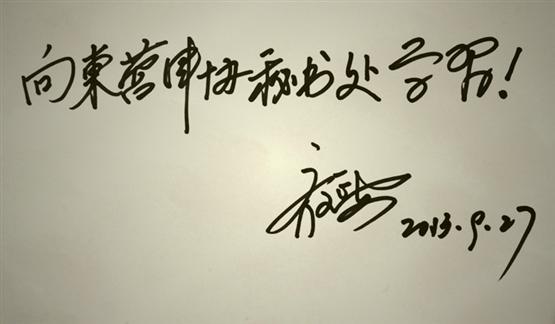 向東营律协秘书处学习!
2013.9.27